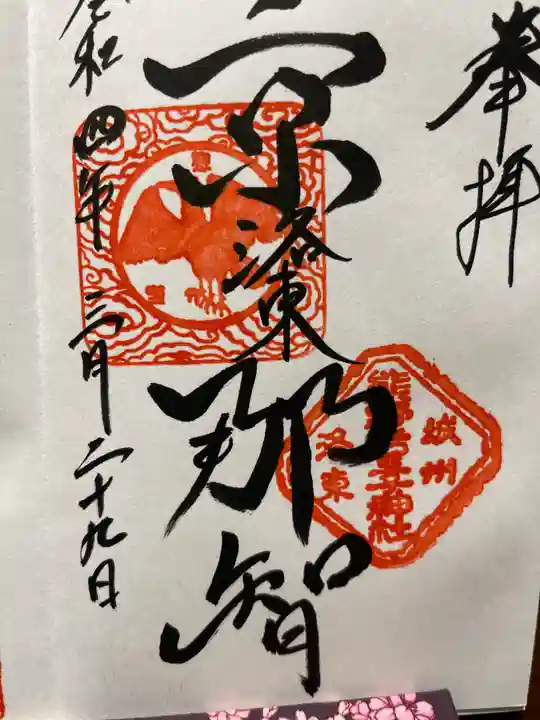 奉拝
京
洛東
那智
令和四年三月二十九日
城州
熊野若王子神社
洛東